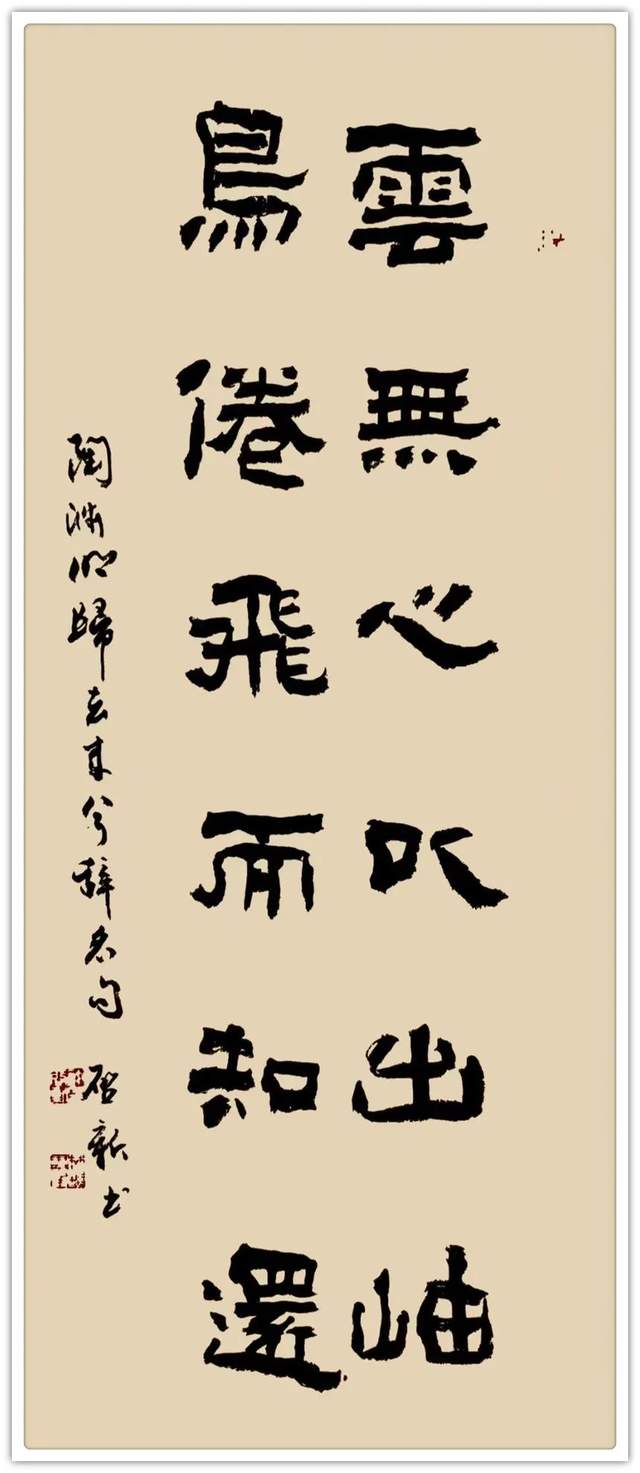 雲無心以出岫
鳥倦飛而知還
陶淵明歸去来兮辞名句
启新书